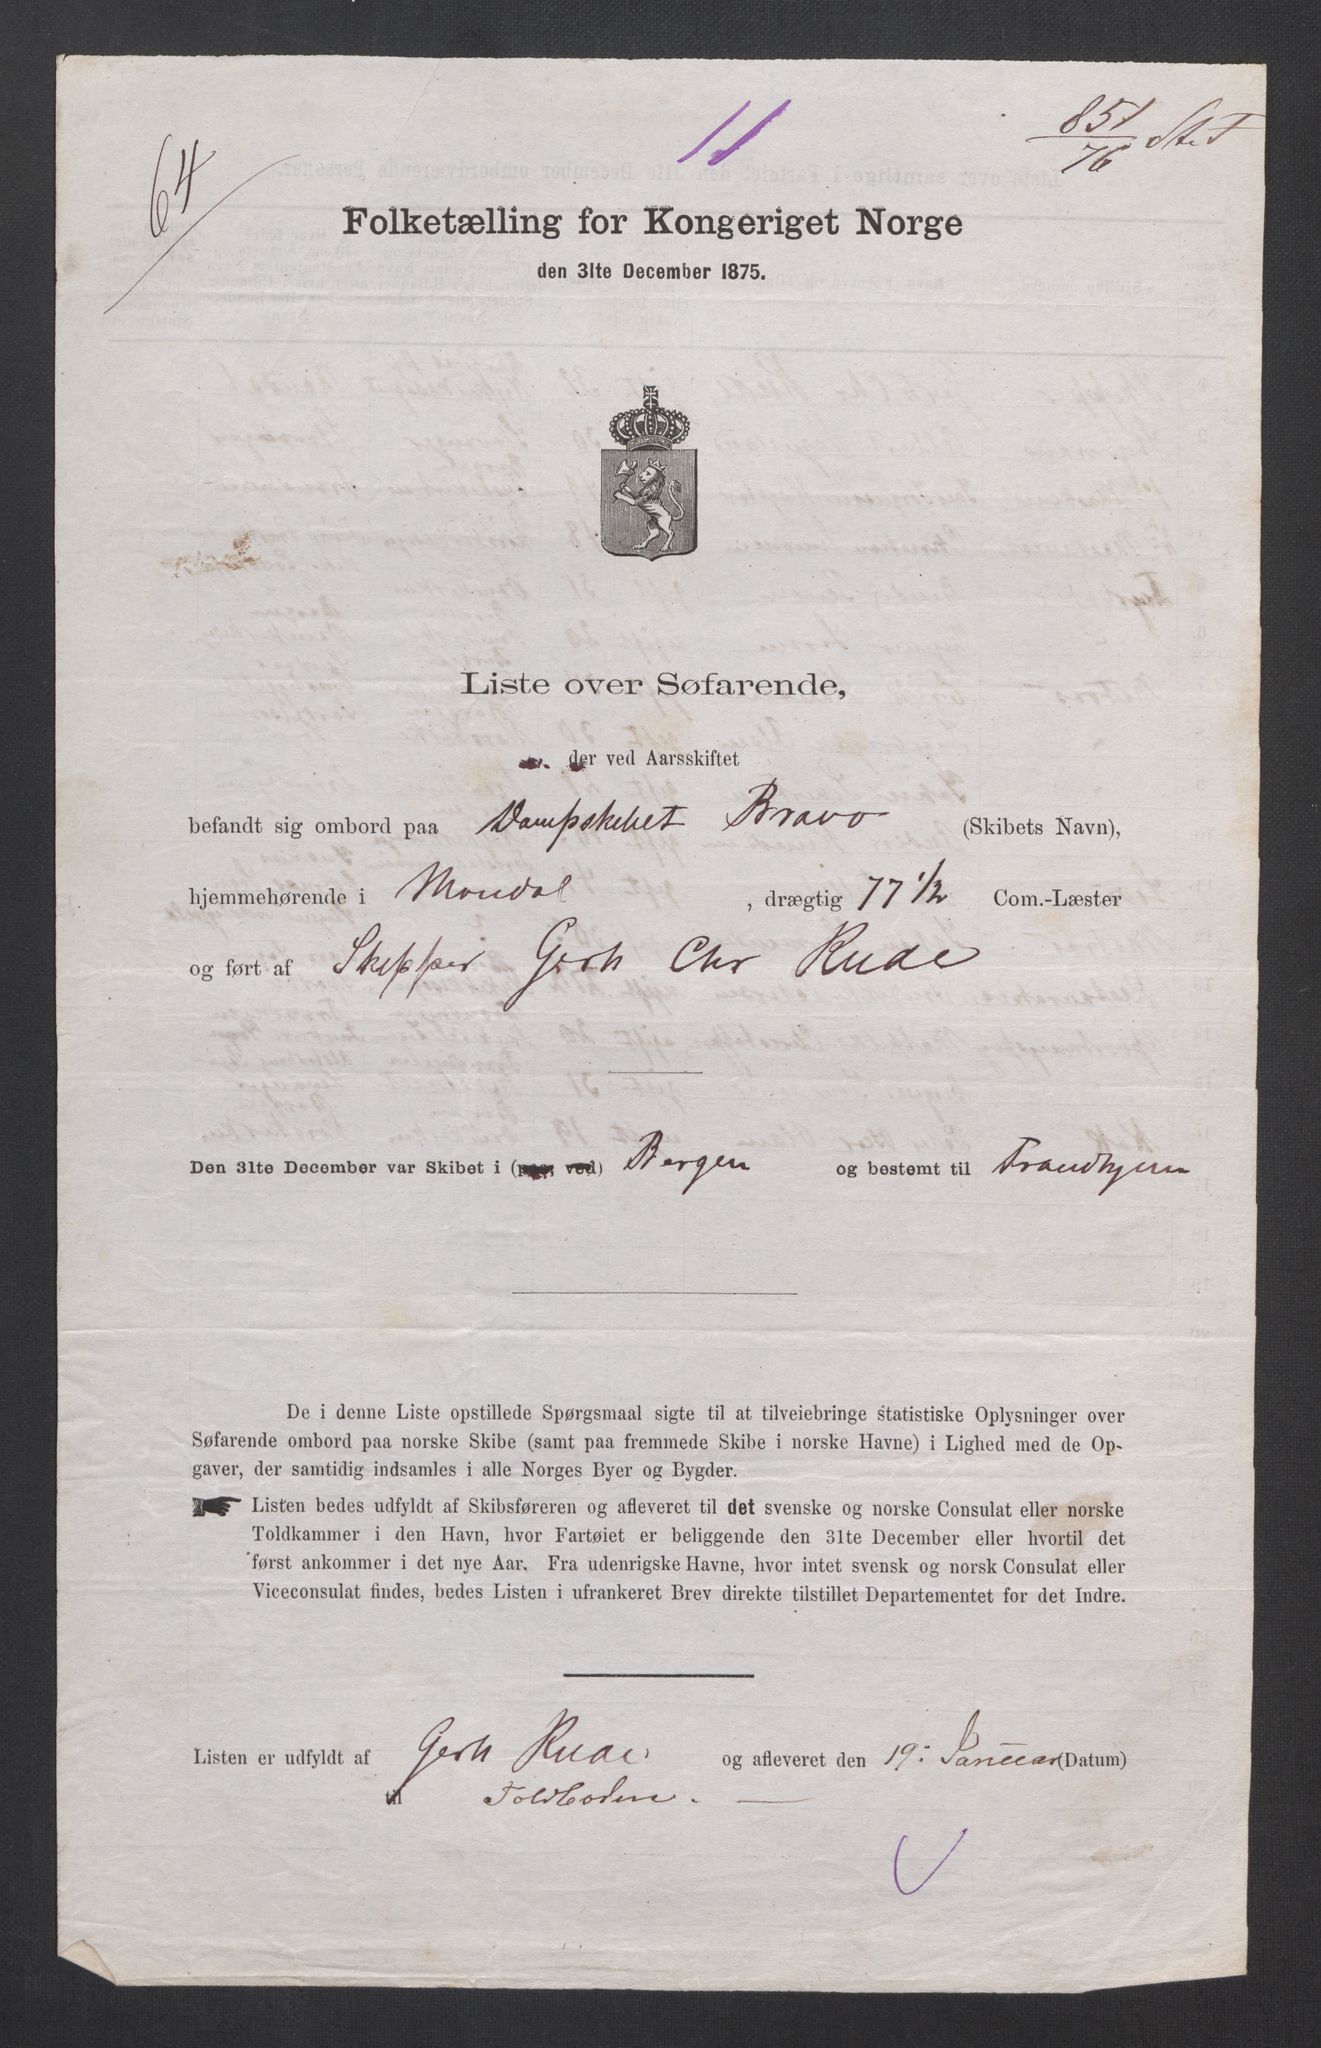 64
11
851
76 St. T
Folketælling for Kongeriget Norge
den 31te December 1875.
Liste over Søfarende,
der ved Aarsskiftet
befandt sig ombord paa Dampskibet Bravo (Skibets Navn),
hjemmehørende i Mandal , drægtig 77 1/2 Com.-Læster
og ført af Skipper Gerh Chr Rude
Den 31te December var Skibet i (paa, ved) Bergen og bestemt til Trondhjem
De i denne Liste opstillede Spørgsmaal sigte til at tilveiebringe statistiske Oplysninger over
Søfarende ombord paa norske Skibe (samt paa fremmede Skibe i norske Havne) i Lighed med de Op-
gaver, der samtidig indsamles i alle Norges Byer og Bygder.
Listen bedes udfyldt af Skibsføreren og afleveret til det svenske og norske Consulat eller norske
Toldkammer i den Havn, hvor Fartøiet er beliggende den 31te December eller hvortil det
først ankommer i det nye Aar. Fra udenrigske Havne, hvor intet svensk og norsk Consulat eller
Viceconsulat findes, bedes Listen i ufrankeret Brev direkte tilstillet Departementet for det Indre.
Listen er udfyldt af Gerh Rude og afleveret den 19: Januar (Datum)
til Toldboden.